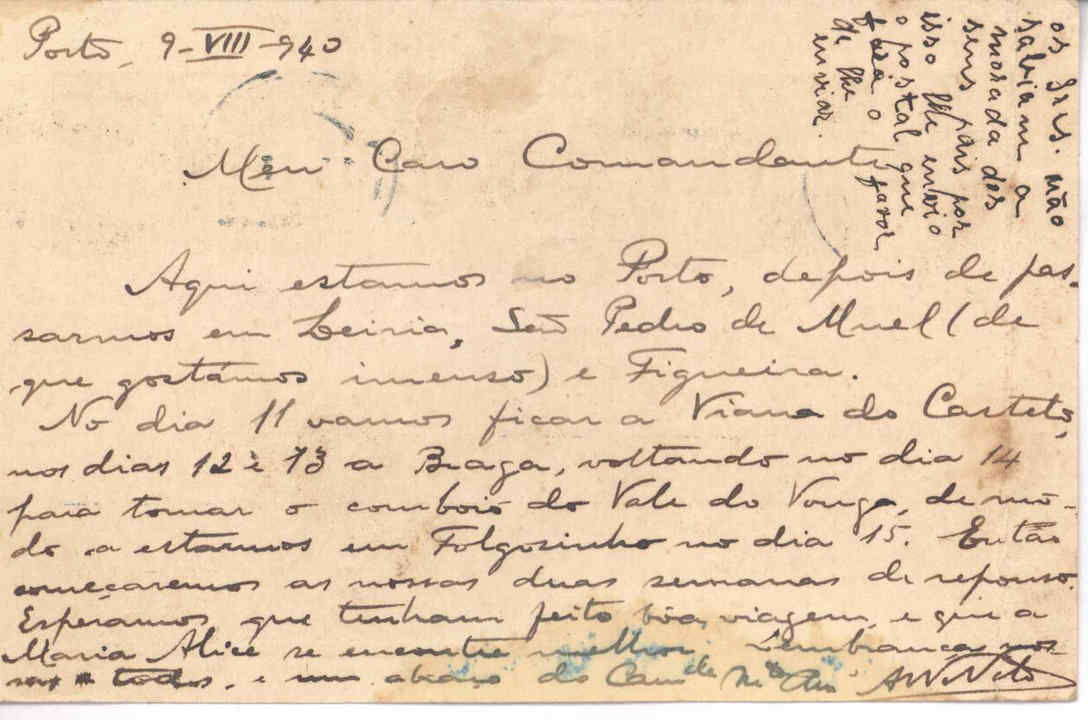 Porto, 9-VIII-940
Meu Caro Comandante
Aqui estamos no Porto, depois de pas-
sarmos em Leiria, São Pedro de Muel (de
que gostámos imenso) e Figueira.
No dia 11 vamos ficar a Viana do Castelo,
nos dias 12 e 13 a Braga, voltando no dia 14
para tomar o comboio do Vale do Vouga, de mo-
do a estarmos em Folgosinho no dia 15. Então
começaremos as nossas duas semanas de repouso.
Esperamos que tenham feito boa viagem, e que a
Maria Alice se encontre melhor. Lembranças nos-
todos, e um abraço do Cam.da
os Srs. não
sabiam a
morada dos
seus pais por
isso lhe envio
o postal que
fará o favor
de lhe
enviar.